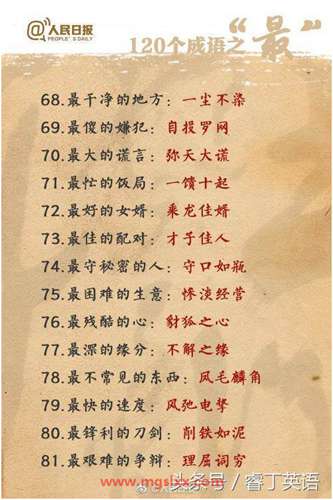 @人民日报
PEOPLE'S DAILY
120个成语之“最”
68.最干净的地方：一尘不染
69.最傻的嫌犯：自报罗网
70.最大的谎言：弥天大谎
71.最忙的饭局：一馈十起
72.最好的女婿：乘龙佳婿
73.最佳的配对：才子佳人
74.最守秘密的人：守口如瓶
75.最困难的生意：惨淡经营
76.最残酷的心：豺狐之心
77.最深的缘分：不解之缘
78.最不常见的东西：凤毛麟角
79.最快的速度：风驰电掣
80.最锋利的刀剑：削铁如泥
81.最艰难的争辩：理屈词穷
头条号／睿丁英语
www.mgslxx.com